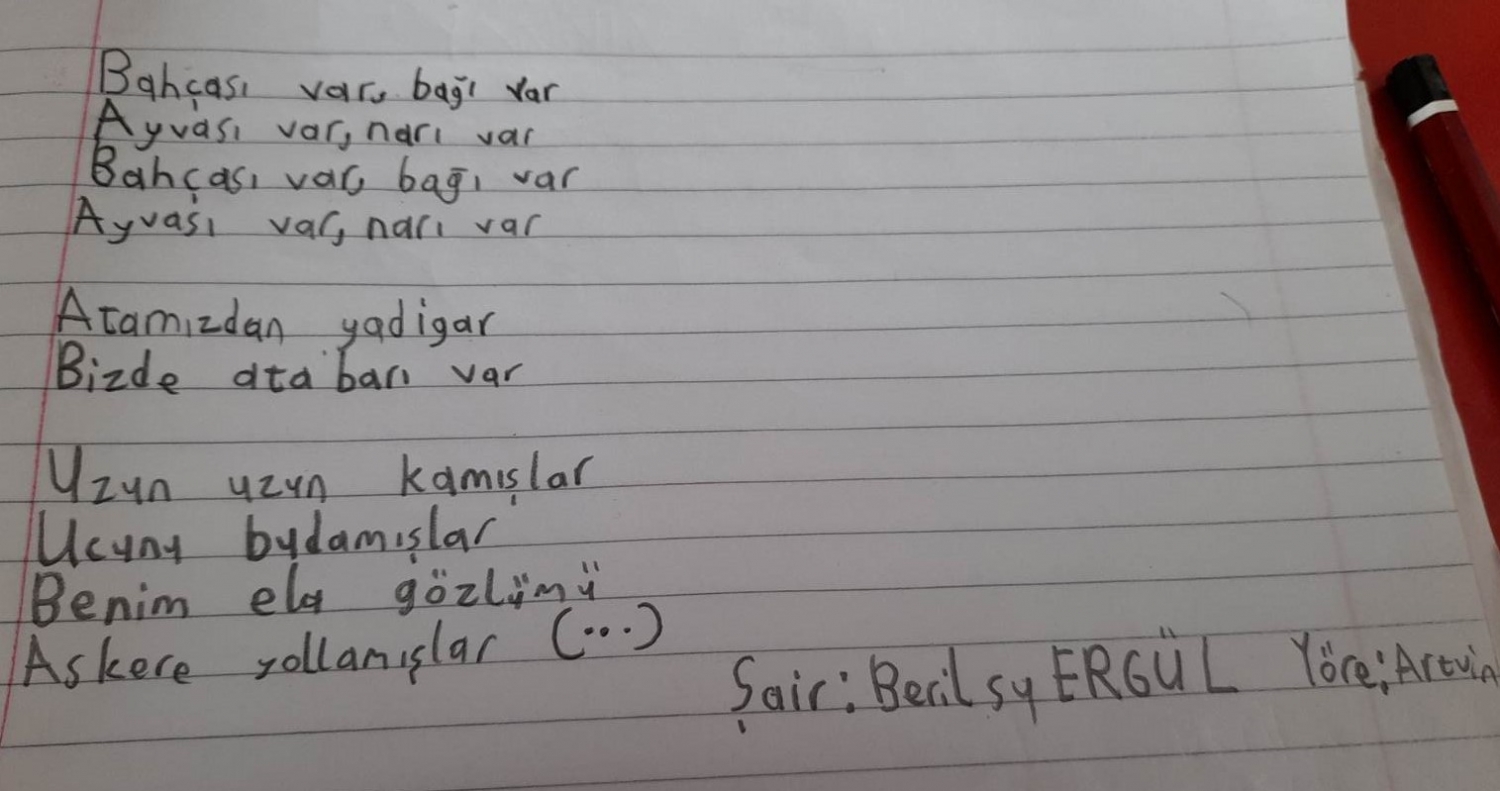 Bahçası var, bağı var
Ayvası var, narı var
Bahçası var, bağı var
Ayvası var, narı var
Atamızdan yadigar
Bizde ata barı var
Uzun uzun kamışlar
Ucunu budamışlar
Benim ela gözlümü
Askere yollamışlar (...)
Şair: Beril su ERGÜL Yöre: Artvin